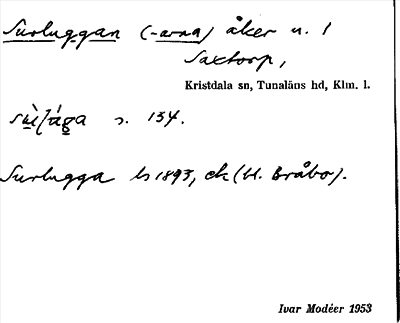 Surluggan (-arna) åker n. 1
Saxtorp,
Kristdala sn, Tunaläns hd, Klm. l.
s. 154.
Surlugga ls 1893, ek (N. Bråbo).
Ivar Modéer 1953